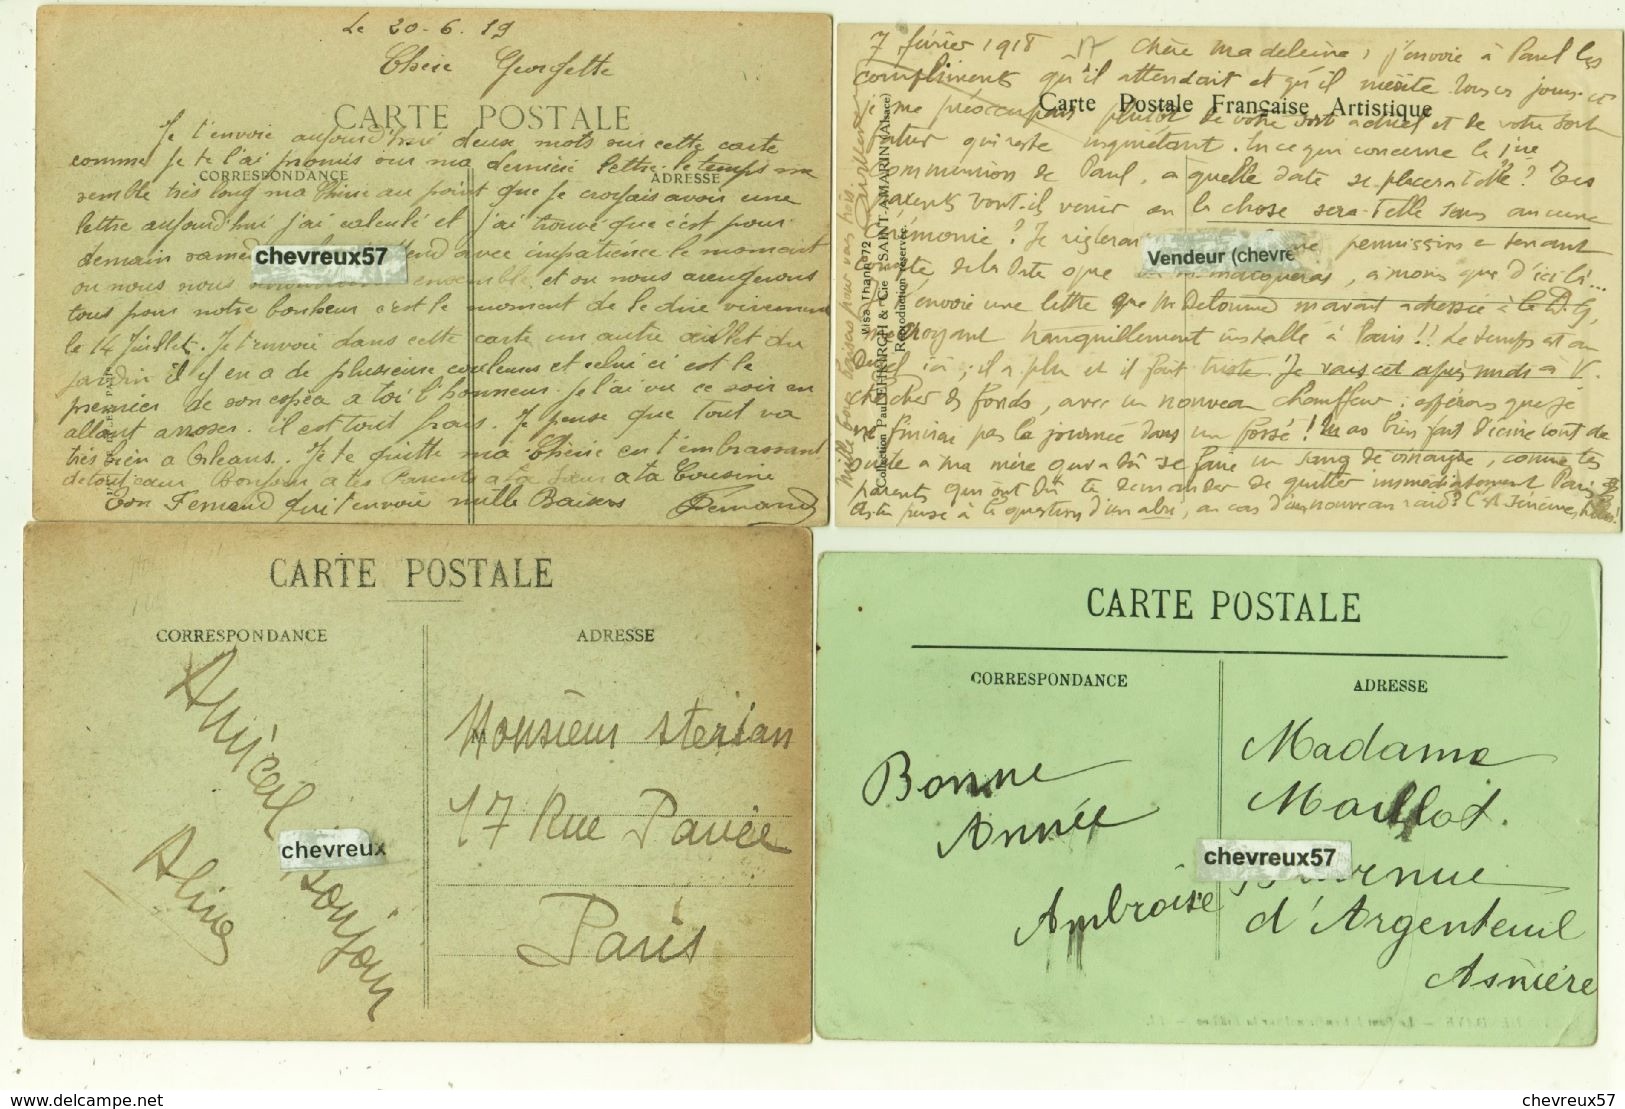 Le 20-6.19
Chère Georgette
CARTE POSTALE
Je t'envoie aujourd'hui deux mots sur cette carte
comme je te l'ai promis sur ma dernière lettre. le temps me
CORRESPONDANCE
ADRESSE
semble très long ma Chérie au point que je croyais avoir une
lettre aujourd'hui j'ai calculé et j'ai trouvé que c'est pour
demain avec impatience le moment
chevreux57
ou nous nous ensemble et ou nous
tous pour notre bonheur c'est le moment de le dire vivement
le 14 Juillet. Je t'envoie dans cette carte un autre œillet du
jardin il y en a de plusieurs couleurs et celui ci est le
premier de son espéce a toi l'honneur. je l'ai vu ce soir en
allant arroser. il est tout frais. Je pense que tout va
très bien a Orleans. Je te quitte ma Chérie en t'embrassant
de tout cœur Bonjour a tes Parents a ta Sœur a ta Cousine
Ton Fernand qui t'envoie mille Baisers Fernand
7 février 1918 Chère Madeleine, j'envoie à Paul les
compliments qu'il attendait et qu'il mérite
Carte Postale Française Artistique
je me préoccupais plutôt de votre sort actuel et de votre sort
futur qui reste inquiétant. En ce qui concerne la 1ère
communion de Paul, à quelle date se placera-t-elle? Tes
parents vont-ils venir ou la chose sera-t-elle sans aucune
cérémonie? Je permission en tenant
Vendeur (chevre
compte de la date que , à moins que d'ici là...
envoie une lettre que m'avait adressée à la D.G
me croyant tranquillement installé à Paris!! Le temps est au
ici; il a plu et il fait triste. Je vais cet après midi à V.
chercher des fonds, avec un nouveau chauffeur; espérons que je
ne finirai pas la journée dans un fossé! Tu as bien fait d'écrire tout de
suite à ma mère qui a dû se faire un sang de vinaigre, comme tes
parents qui ont dû te demander de quitter immédiatement Paris
As-tu pensé à la question d'un abri, au cas d'un nouveau raid?
Mille bons baisers pour vous trois.
Visa Thann n°72
Collection Paul EHKIRCH & Cie SAINT-AMARIN (Alsace)
Reproduction réservée
CARTE POSTALE
CORRESPONDANCE
ADRESSE
Amical
bonjour
Aline
chevreux
Monsieur Sterian
17 Rue Pavée
Paris
CARTE POSTALE
CORRESPONDANCE
ADRESSE
Bonne
Année
Ambroise
Madame
Maillot.
chevreux57
Avenue
d'Argenteuil
Asnière
www.delcampe.net
chevreux57